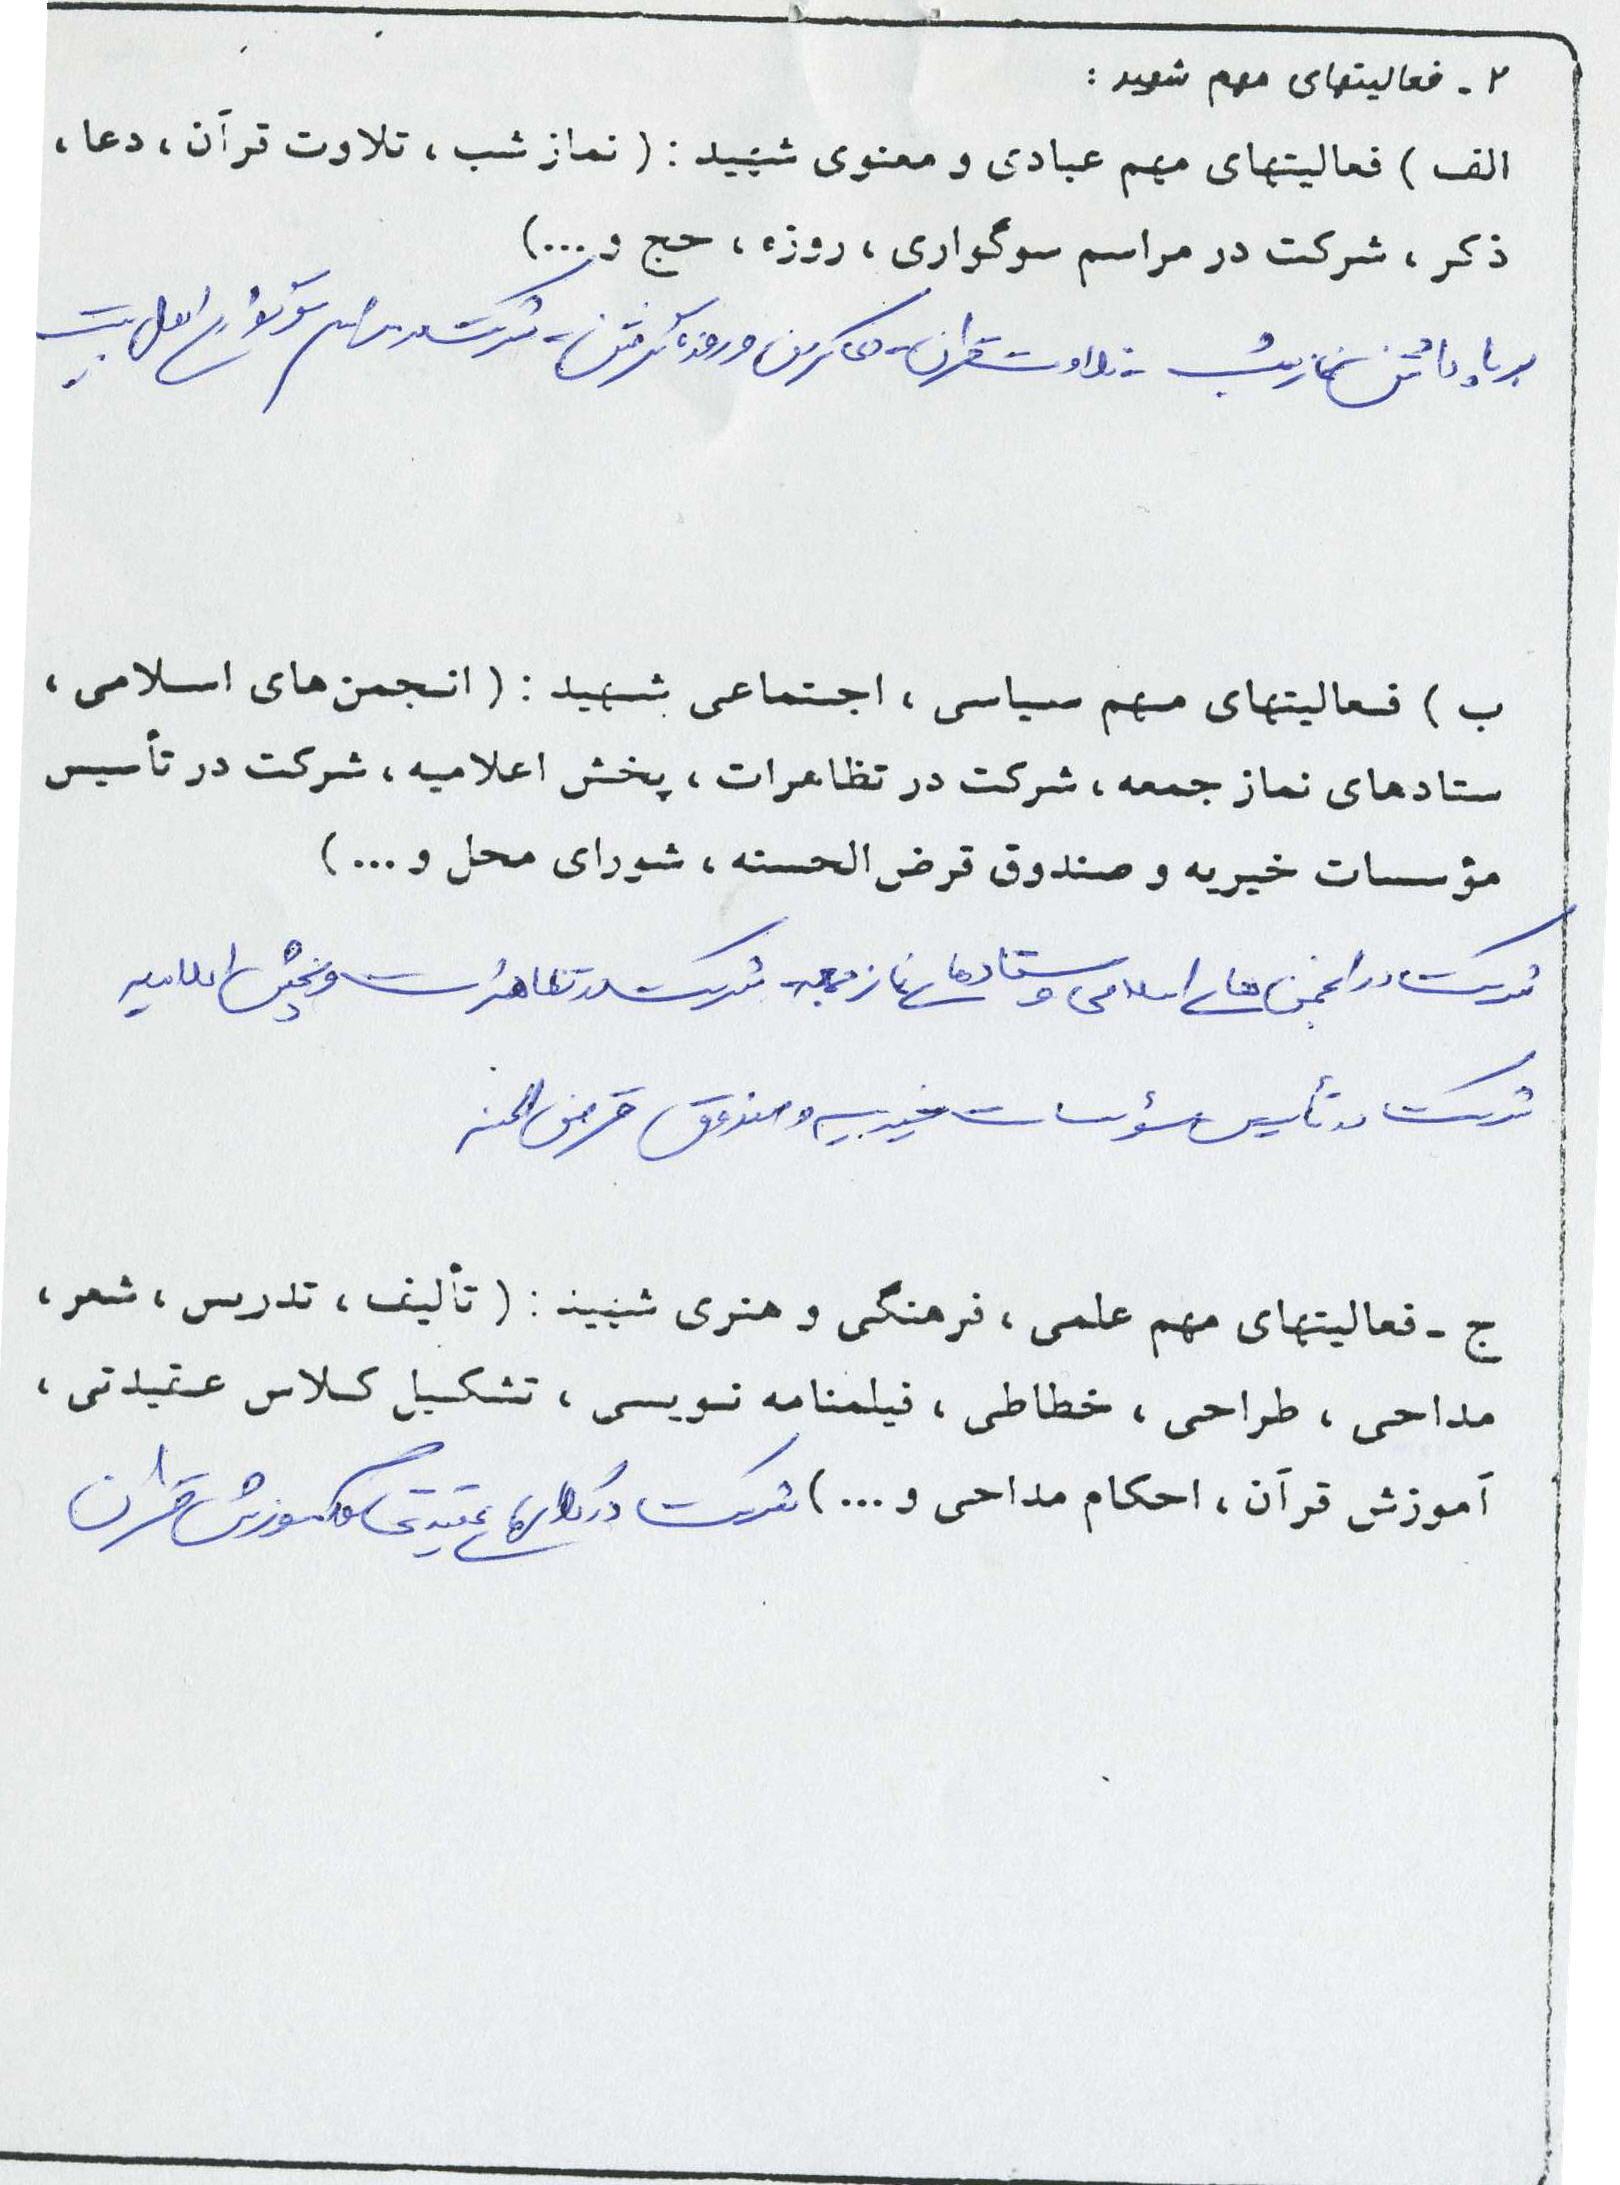 ۲ - فعالیتهای مهم شهید :
الف ) فعالیتهای مهم عبادی و معنوی شهید : ( نماز شب ، تلاوت قرآن ، دعا ،
ذکر ، شرکت در مراسم سوگواری ، روزه ، حج و ...)
برپا داشتن نماز شب - تلاوت قرآن - دعا کردن و روزه گرفتن - شرکت در مراسم سوگواری اهل بیت
ب ) فعالیتهای مهم سیاسی ، اجتماعی شهید : ( انجمن‌های اسلامی ،
ستادهای نماز جمعه ، شرکت در تظاهرات ، پخش اعلامیه ، شرکت در تأسیس
مؤسسات خیریه و صندوق قرض الحسنه ، شورای محل و ... )
شرکت در انجمن های اسلامی و ستادهای نماز جمعه - شرکت در تظاهرات و پخش اعلامیه
شرکت در تأسیس مؤسسات خیریه و صندوق قرض الحسنه
ج - فعالیتهای مهم علمی ، فرهنگی و هنری شهید : ( تألیف ، تدریس ، شعر ،
مداحی ، طراحی ، خطاطی ، فیلمنامه نویسی ، تشکیل کلاس عقیدتی ،
آموزش قرآن ، احکام مداحی و ... ) شرکت در کلاسهای عقیدتی و آموزش قرآن